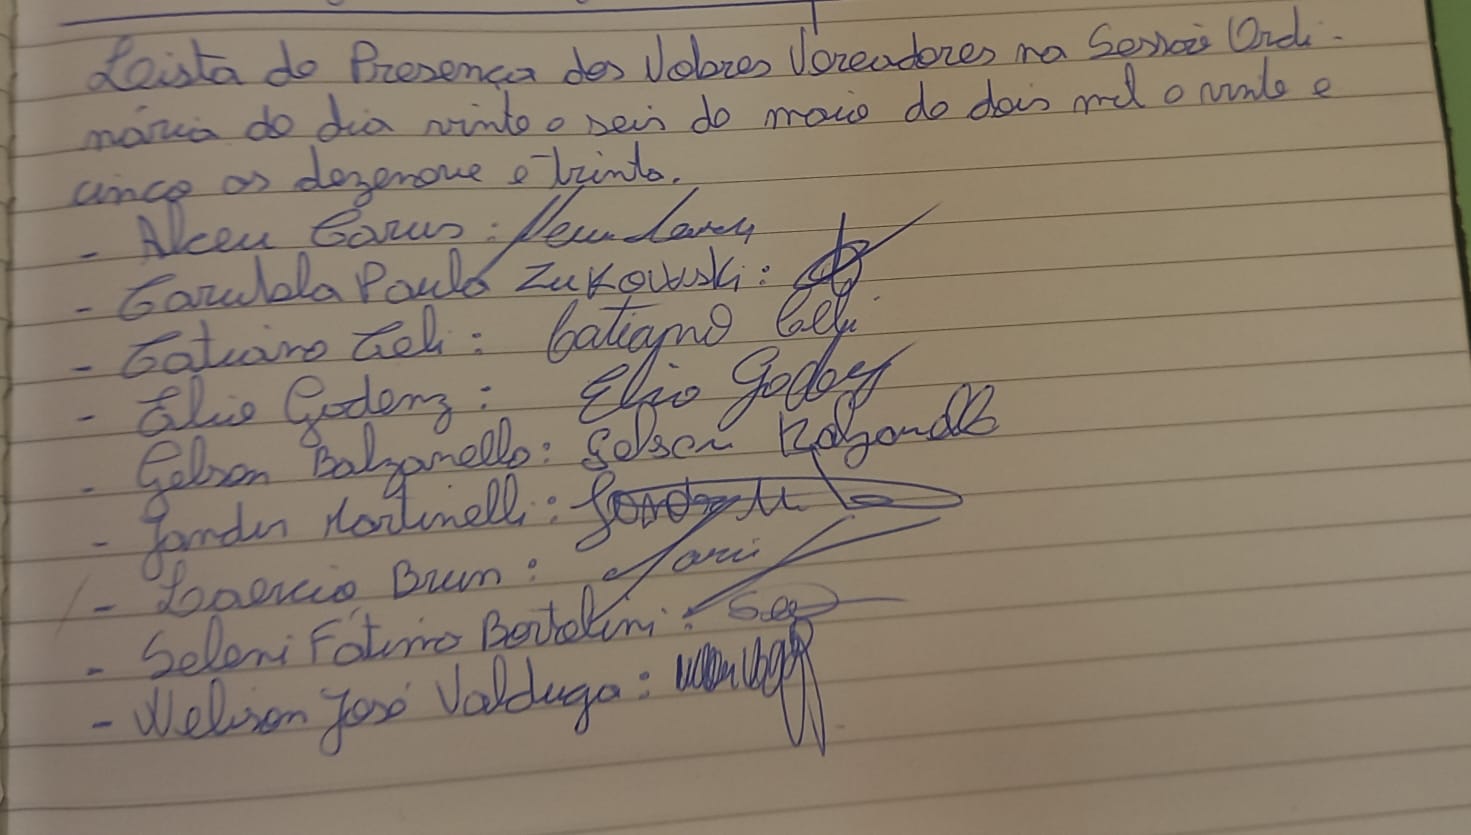 Leista de Presença dos Nobres Vereadores na Sessão Ordi-
nária do dia vinte e seis de maio de dois mil e vinte e
cinco as dezenove e trinta.
- Alceu Garus:
- Carubla Paula Zukowski:
- Catiano Celi: Catiano Celi
- Elio Godenz: Elio Godoy
- Gelson Balzanello: Gelson Balzanello
- Jander Martinelli:
- Laercio Brun:
- Seleni Fátima Bertolini:
- Welison José Valduga: